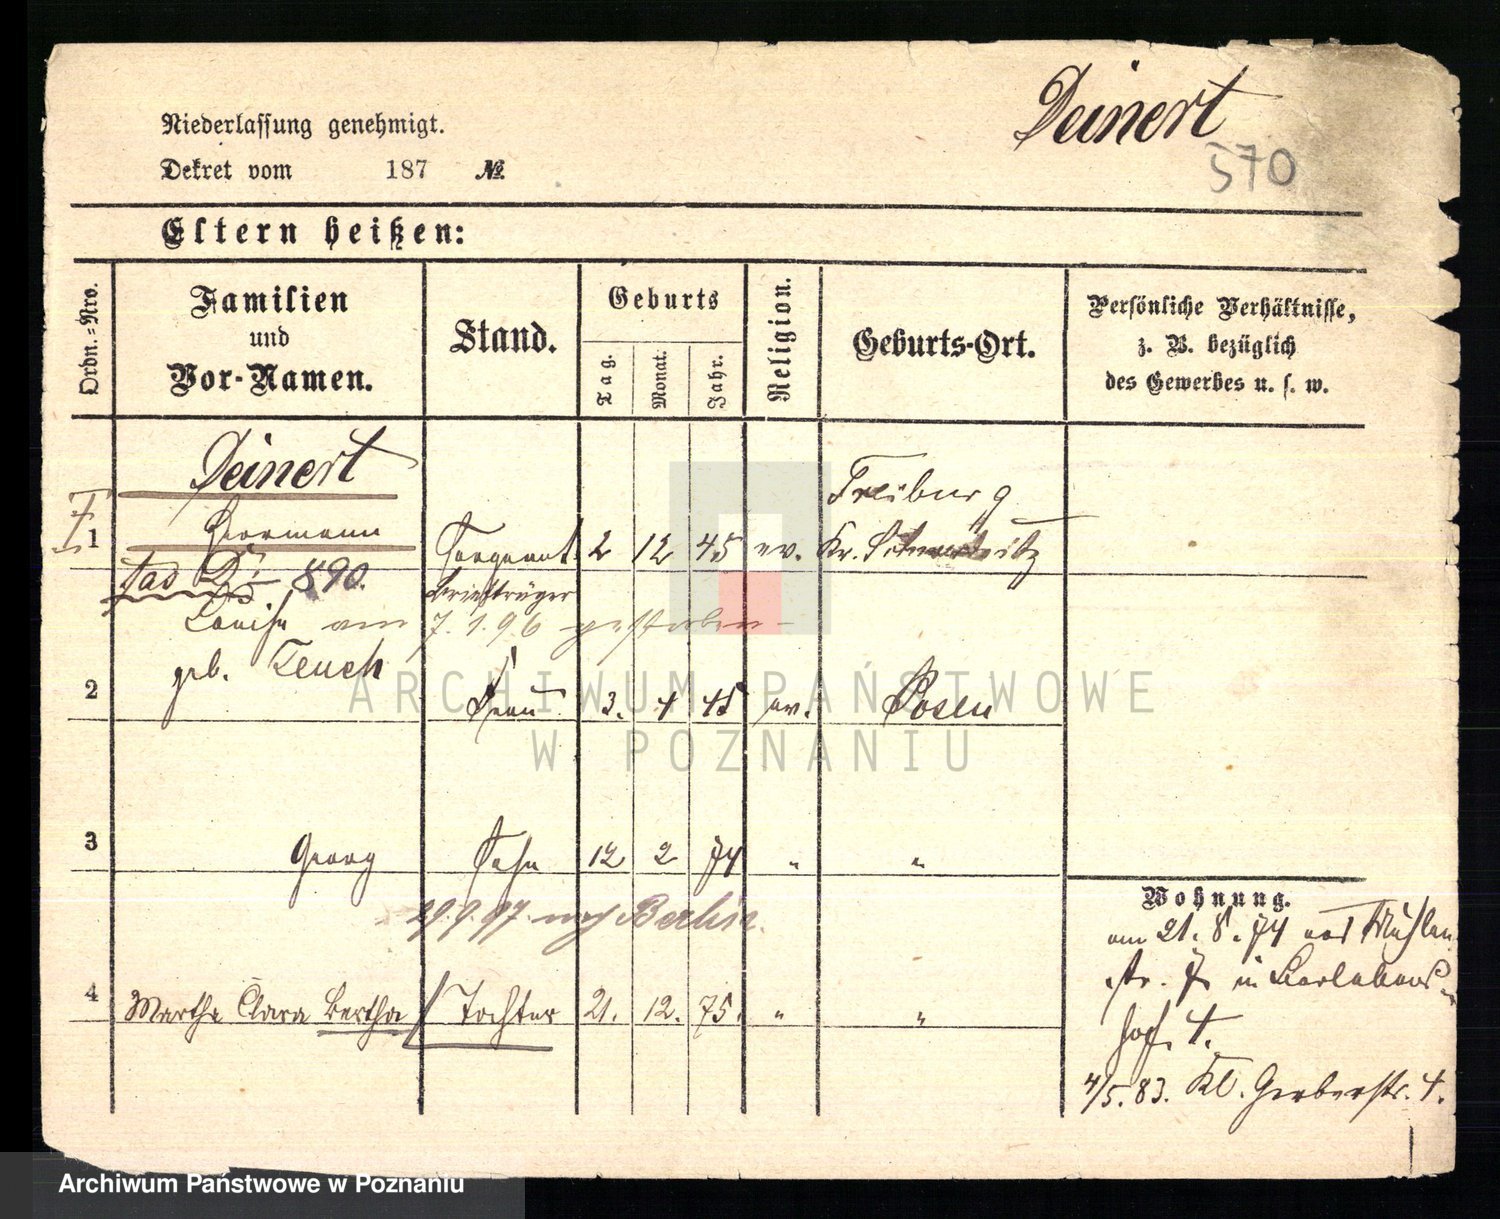 Deinert
570
Niederlassung genehmigt.
Dekret vom 187 №.
Eltern heißen:
Ordn.-Nro.
Familien
und
Vor-Namen.
Stand.
Geburts
Tag.
Monat.
Jahr.
Religion.
Geburts-Ort.
Persönliche Verhältnisse,
z. B. bezüglich
des Gewerbes u. s. w.
Deinert
1 Hermann Sergeant 2 12 45 ev. Freiburg
Kr. Schweidnitz
890.
Briefträger
Louise am 7. 1. 96 gestorben
2 geb. Teuch Frau 3. 4 45 ev. Posen
3 Georg Sohn 12 2 74 " "
29.9.97. nach Berlin.
4 Martha Clara Bertha Tochter 21. 12. 75. " "
Wohnung.
am 21. 8. 74 von Mühlen
str. 7 in
hof. 4.
4/5. 83. Kl. Gerberstr. 4.
ARCHIWUM PAŃSTWOWE
W POZNANIU
Archiwum Państwowe w Poznaniu